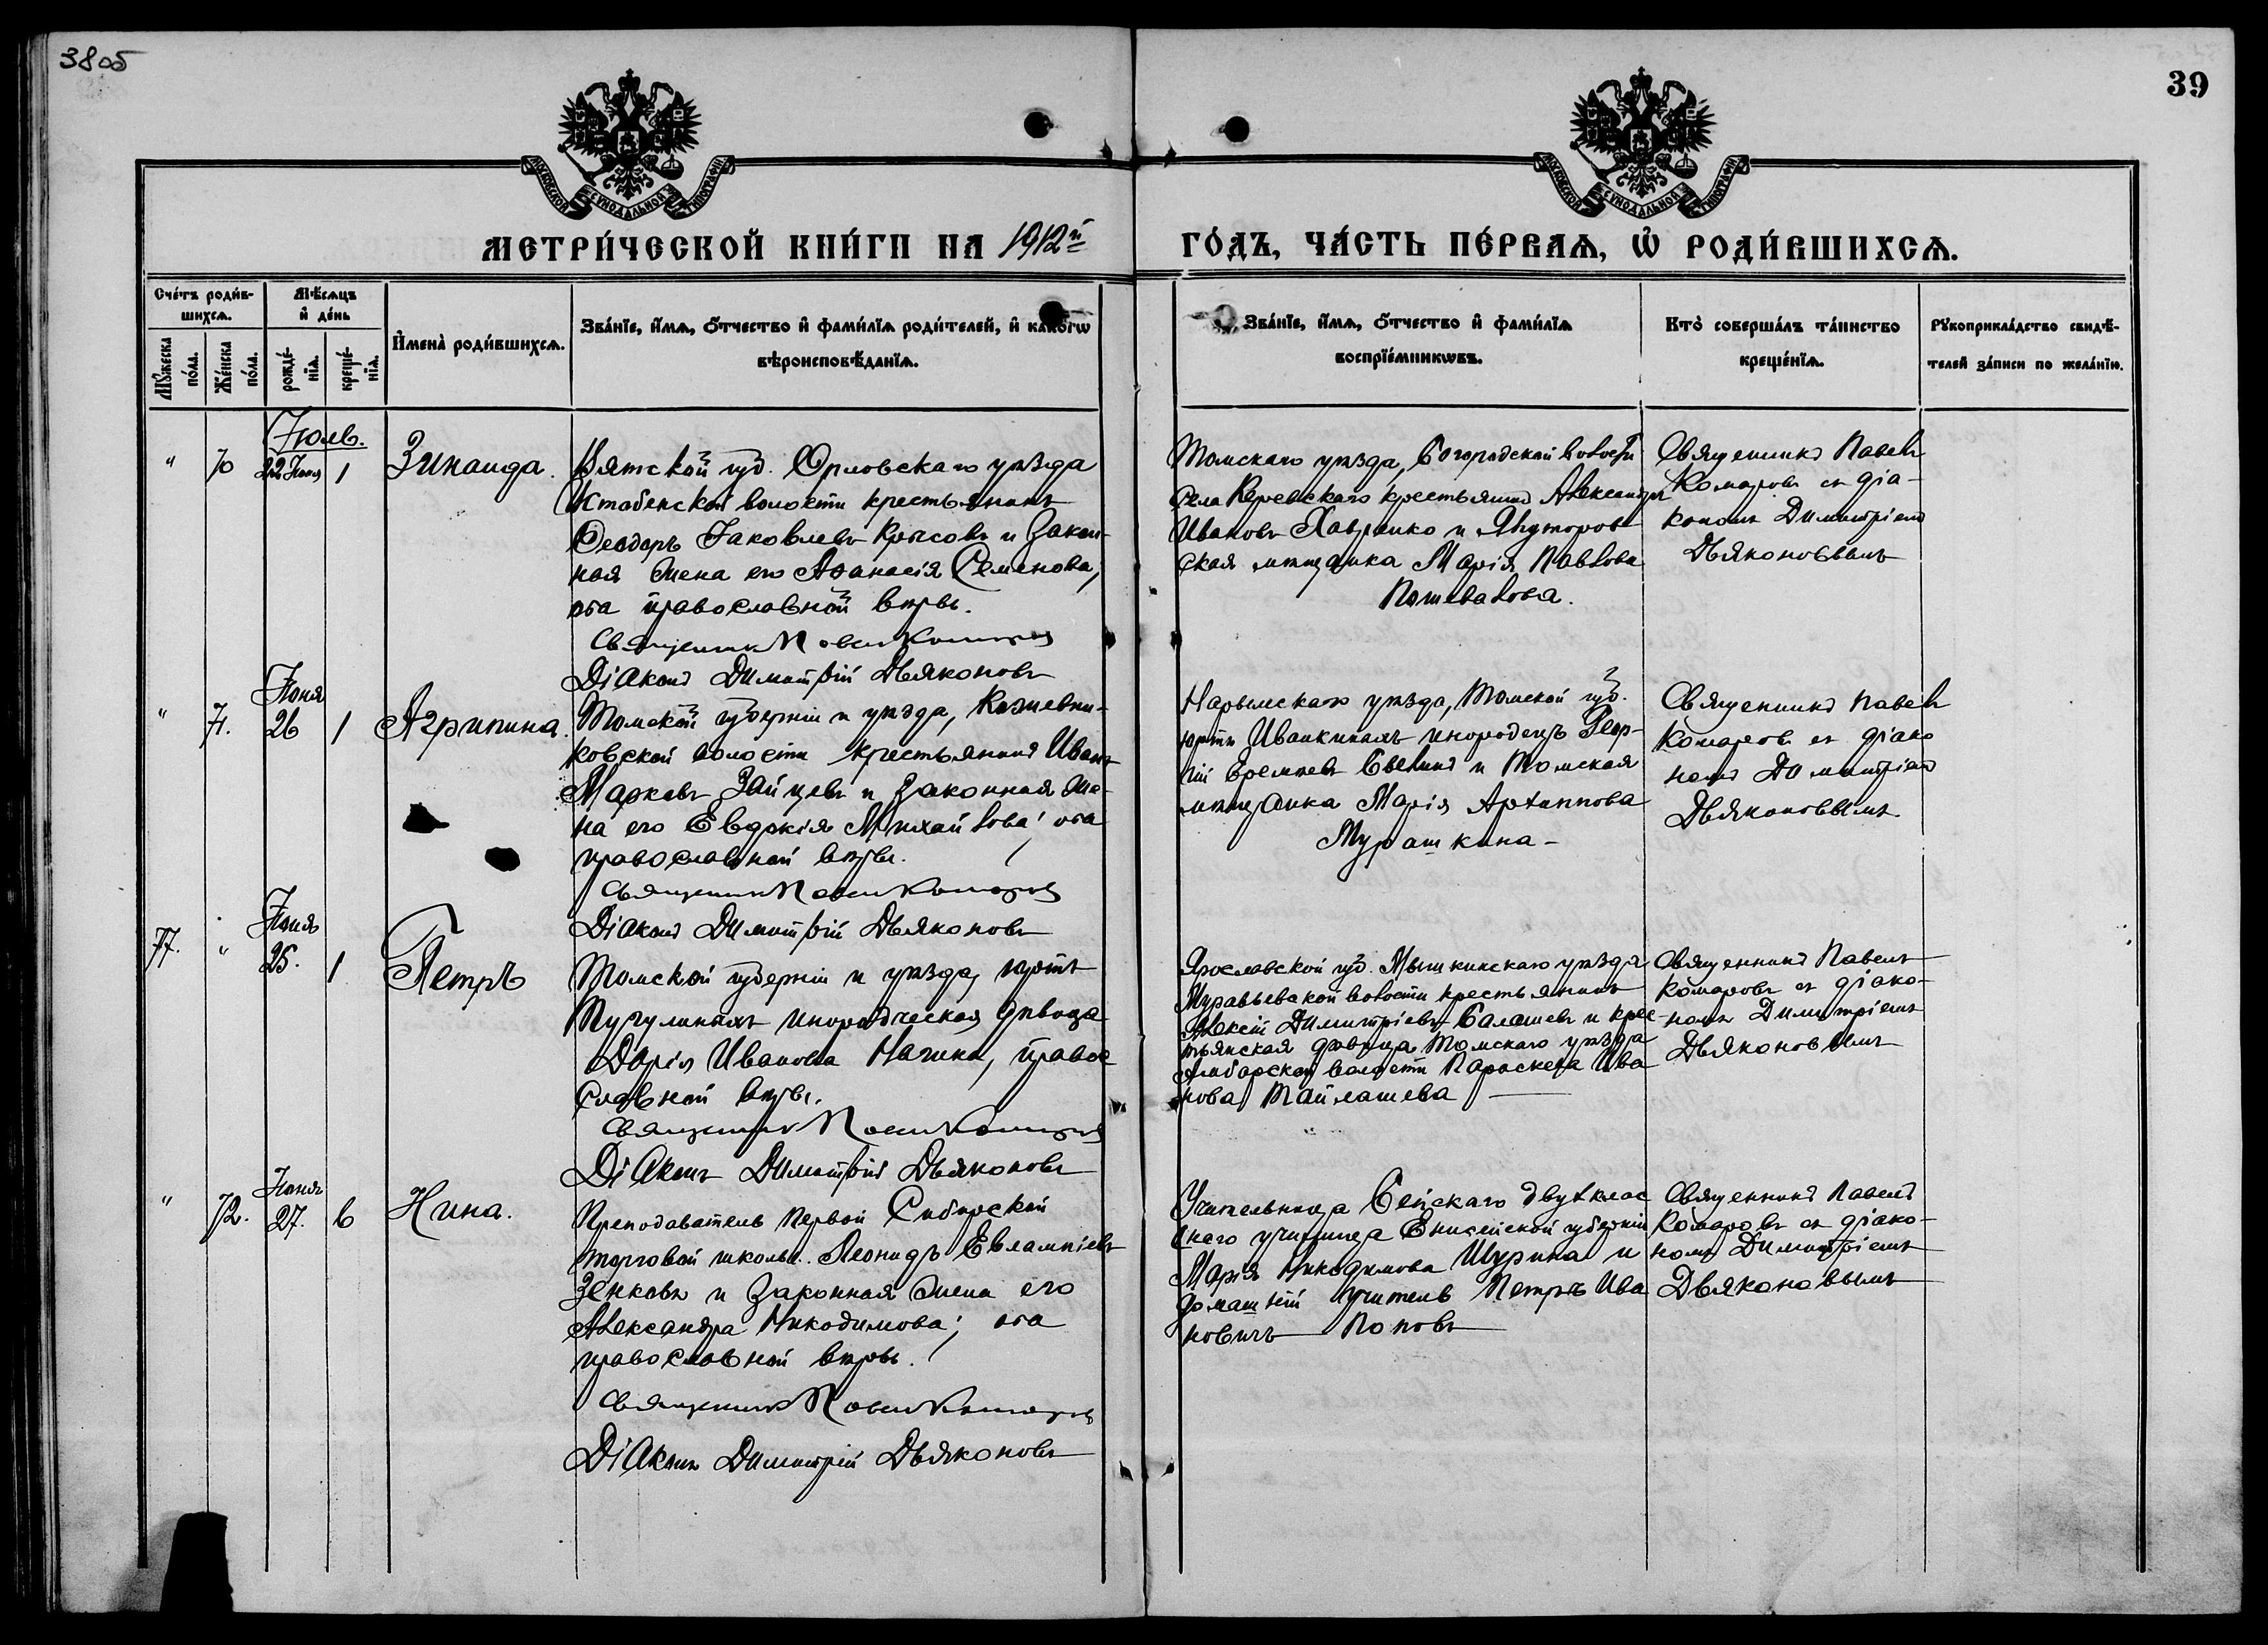 3805
39
МОСКОВСКОЙ СѴНОДАЛЬНОЙ ТИПОГРАФІИ
МОСКОВСКОЙ СѴНОДАЛЬНОЙ ТИПОГРАФІИ
МЕТРИ́ЧЕСКОЙ КНИ́ГИ НА 1912й
ГО́ДЪ, ЧА́СТЬ ПЕ́РВАѦ, Ѡ҆ РОДИ́ВШИХСѦ.
Сче́тъ роди́в-
шихсѧ.
Мꙋ́жеска
по́ла.
Же́нска
по́ла.
Мѣ́сѧцъ
и҆ де́нь
рожде́-
нїѧ.
креще́-
нїѧ.
И҆мена̀ роди́вшихсѧ.
Зва́нїе, и҆́мѧ, ѻ҆́тчество и҆ фами́лїѧ роди́телей, и҆ како́гѡ
вѣроисповѣ́данїѧ.
Зва́нїе, и҆́мѧ, ѻ҆́тчество и҆ фами́лїѧ
воспрїе́мникѡвъ.
Кто̀ соверша́лъ та́инство
креще́нїѧ.
Рꙋкоприкла́дство свидѣ́-
телей за́писи по жела́нїю.
Іюль.
" 70 22 Іюня 1 Зинаида.
Вятской губ. Орловскаго уѣзда
Истобенской волости крестьянинъ
Ѳеодоръ Іаковлевъ Крысовъ и закон-
ная жена его Аѳанасія Семенова,
оба православной вѣры.
Священникъ Павелъ Комаровъ
Діаконъ Димитрій Дьяконовъ
Томскаго уѣзда, Богородской волости
села Керевскаго крестьянинъ Александръ
Ивановъ Лавренко и Ялуторов
ская мѣщанка Марія Павлова
Пошевалова.
Священникъ Павелъ
Комаровъ съ діа-
кономъ Димитріемъ
Дьяконовымъ
Іюня
" 71. 26 1 Агрипина.
Томской губерніи и уѣзда, Кожевни-
ковской волости крестьянинъ Иванъ
Марковъ Зайцевъ и законная же-
на его Евдокія Михайлова; оба
православной вѣры.
Священникъ Павелъ Комаровъ
Діаконъ Димитрій Дьяконовъ
Нарымскаго уѣзда, Томской губ.
юртъ Иванкиныхъ инородецъ Геор-
гій Еремѣевъ и Томская
мѣщанка Марія Архиппова
Мурашкина -
Священникъ Павелъ
Комаровъ съ діако
номъ Димитріемъ
Дьяконовымъ.
Іюня
77. " 25. 1 Петръ
Томской губерніи и уѣзда, юртъ
инородческая дѣвица
Дарія Иванова Нагина, право
славной вѣры.
Священникъ Павелъ Комаровъ
Діаконъ Димитрій Дьяконовъ
Ярославской губ. Мышкинскаго уѣзда
Муравьевской волости крестьянинъ
Алексій Димитріевъ Балашевъ и крес-
тьянская дѣвица Томскаго уѣзда
волости Параскева Ива
нова Тайлашева
Священникъ Павелъ
Комаровъ съ діако-
номъ Димитріемъ
Дьяконовымъ
Іюня
" 72. 27. 6 Нина.
Преподаватель Первой Сибирской
торговой школы. Леонидъ Евлампіевъ
Зенковъ и законная жена его
Александра Никодимова; оба
православной вѣры.
Священникъ Павелъ Комаровъ
Діаконъ Димитрій Дьяконовъ
Учительница двухклас
снаго училища Енисейской губерніи
Марія Никодимова Шурина и
домашній учитель Петръ Ива
новичъ Поповъ
Священникъ Павелъ
Комаровъ съ діако-
номъ Димитріемъ
Дьяконовымъ